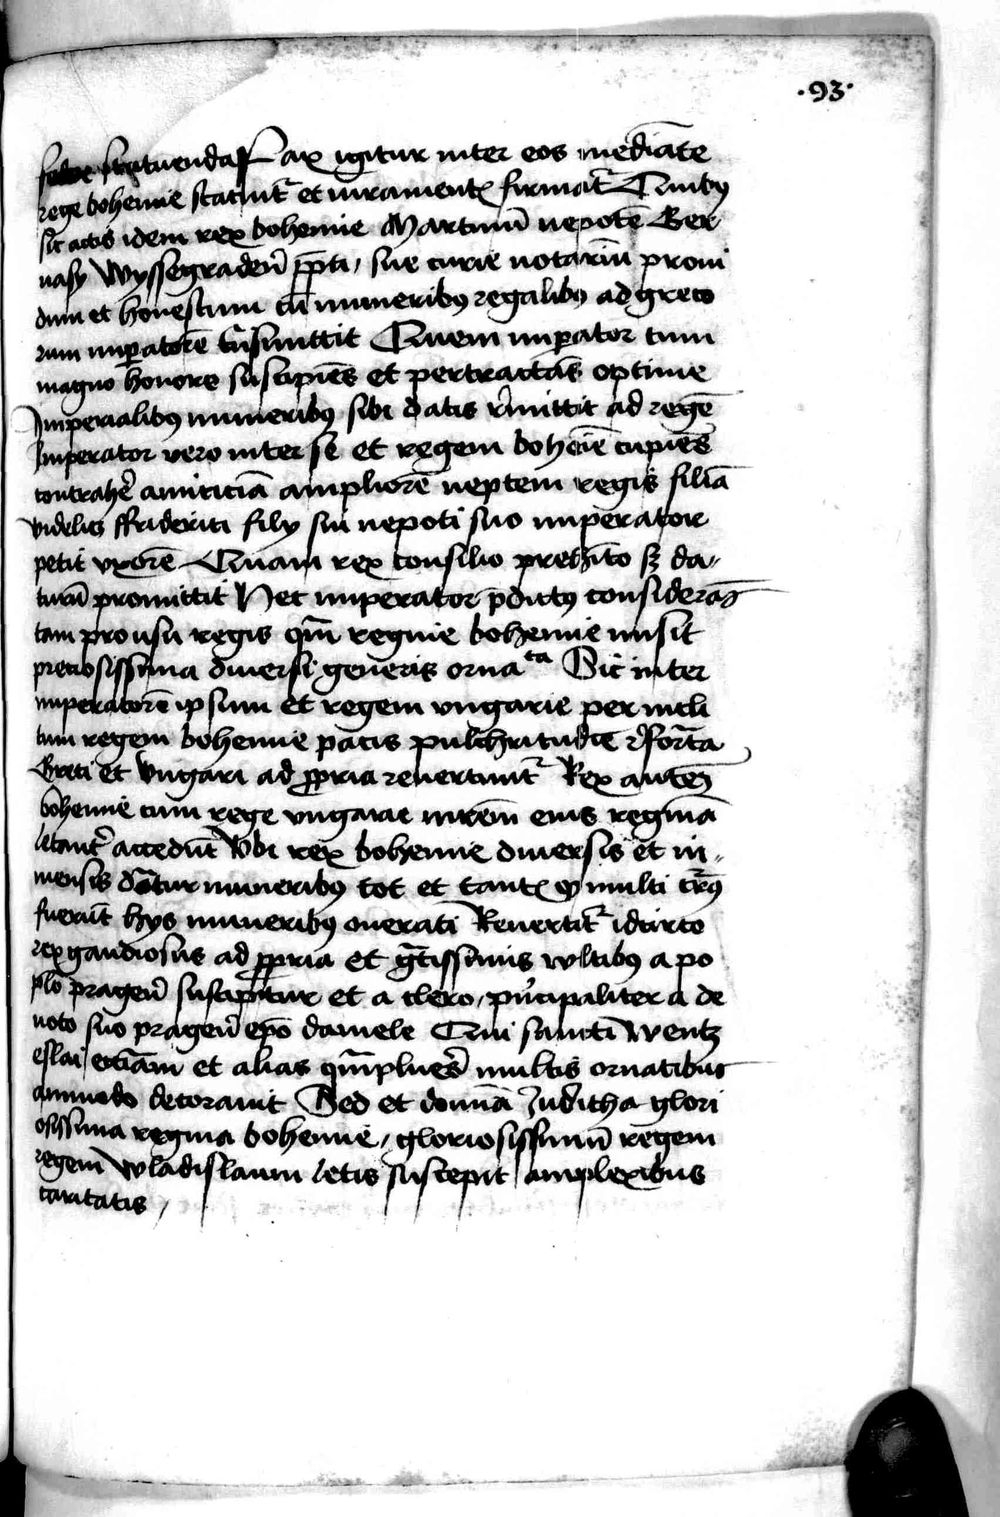 ·93·
statuendas Pax igitur inter eos mediāte
rege bohemie statuit᷑ et iuramentꝭ firmat᷑ Quibꝯ
sic actis idem rex bohemie Martinū nepotē Ger
uasy Wyssegradeñ ꝓpti / sue curie notariū proui
dum et honestum cū muneribꝯ regalibꝯ ad greco
rum imꝑatorē tñsmittit Quem imꝑator cum
magno honore suscipiēs et pertractās optime
Imperialibꝯ muneribꝯ sibi datis r̄mittit ad regē
Imperator vero inter se et regem bohēīe cupiēs
contrahe᷑ amiciciā ampliorē neptem regis filiā
videlic ffriderici fily sui nepoti suo imperator
petit vxorē Quam rex consilio prehīto sꝫ da-
turū promittit Hec imperator p̄dictꝯ considerās
tam pro usu regis qm̄ regnie bohemie misit
preciosissima diuersi generis ornata Sic inter
imperatorē ipsum et regem vngarie per incli
tum regem bohemie pacis pulchritudīe r̄forāta
Greci et Vngari ad ꝓpria reuertunt᷑ Rex autē
bohemie cum rege vngarie in rem eius reginā
letant᷑ accedūt Vbi rex bohemie diuersis et in-
mensis dātur muneribꝯ tot et tantꝭ ꝙ multi
fuerūt hys muneribꝯ onerati Reuertit᷑ idcirco
rex gaudiosus ad ꝓpria et gr̄tissimis vultibꝯ a po
plo prageñ suscipitur et a clero / pn̄cipaliter a de
uoto suo prageñ epō daniele Qui sancti Wentz
eslai eccīam et alias qm̄plures multis ornatibus
ammodo decorauit Sed et domnā Juditha glori
osissima regina bohemie / gloriosissimū regem
regem Wladislaum letis suscepit amplexibus
caritatis /